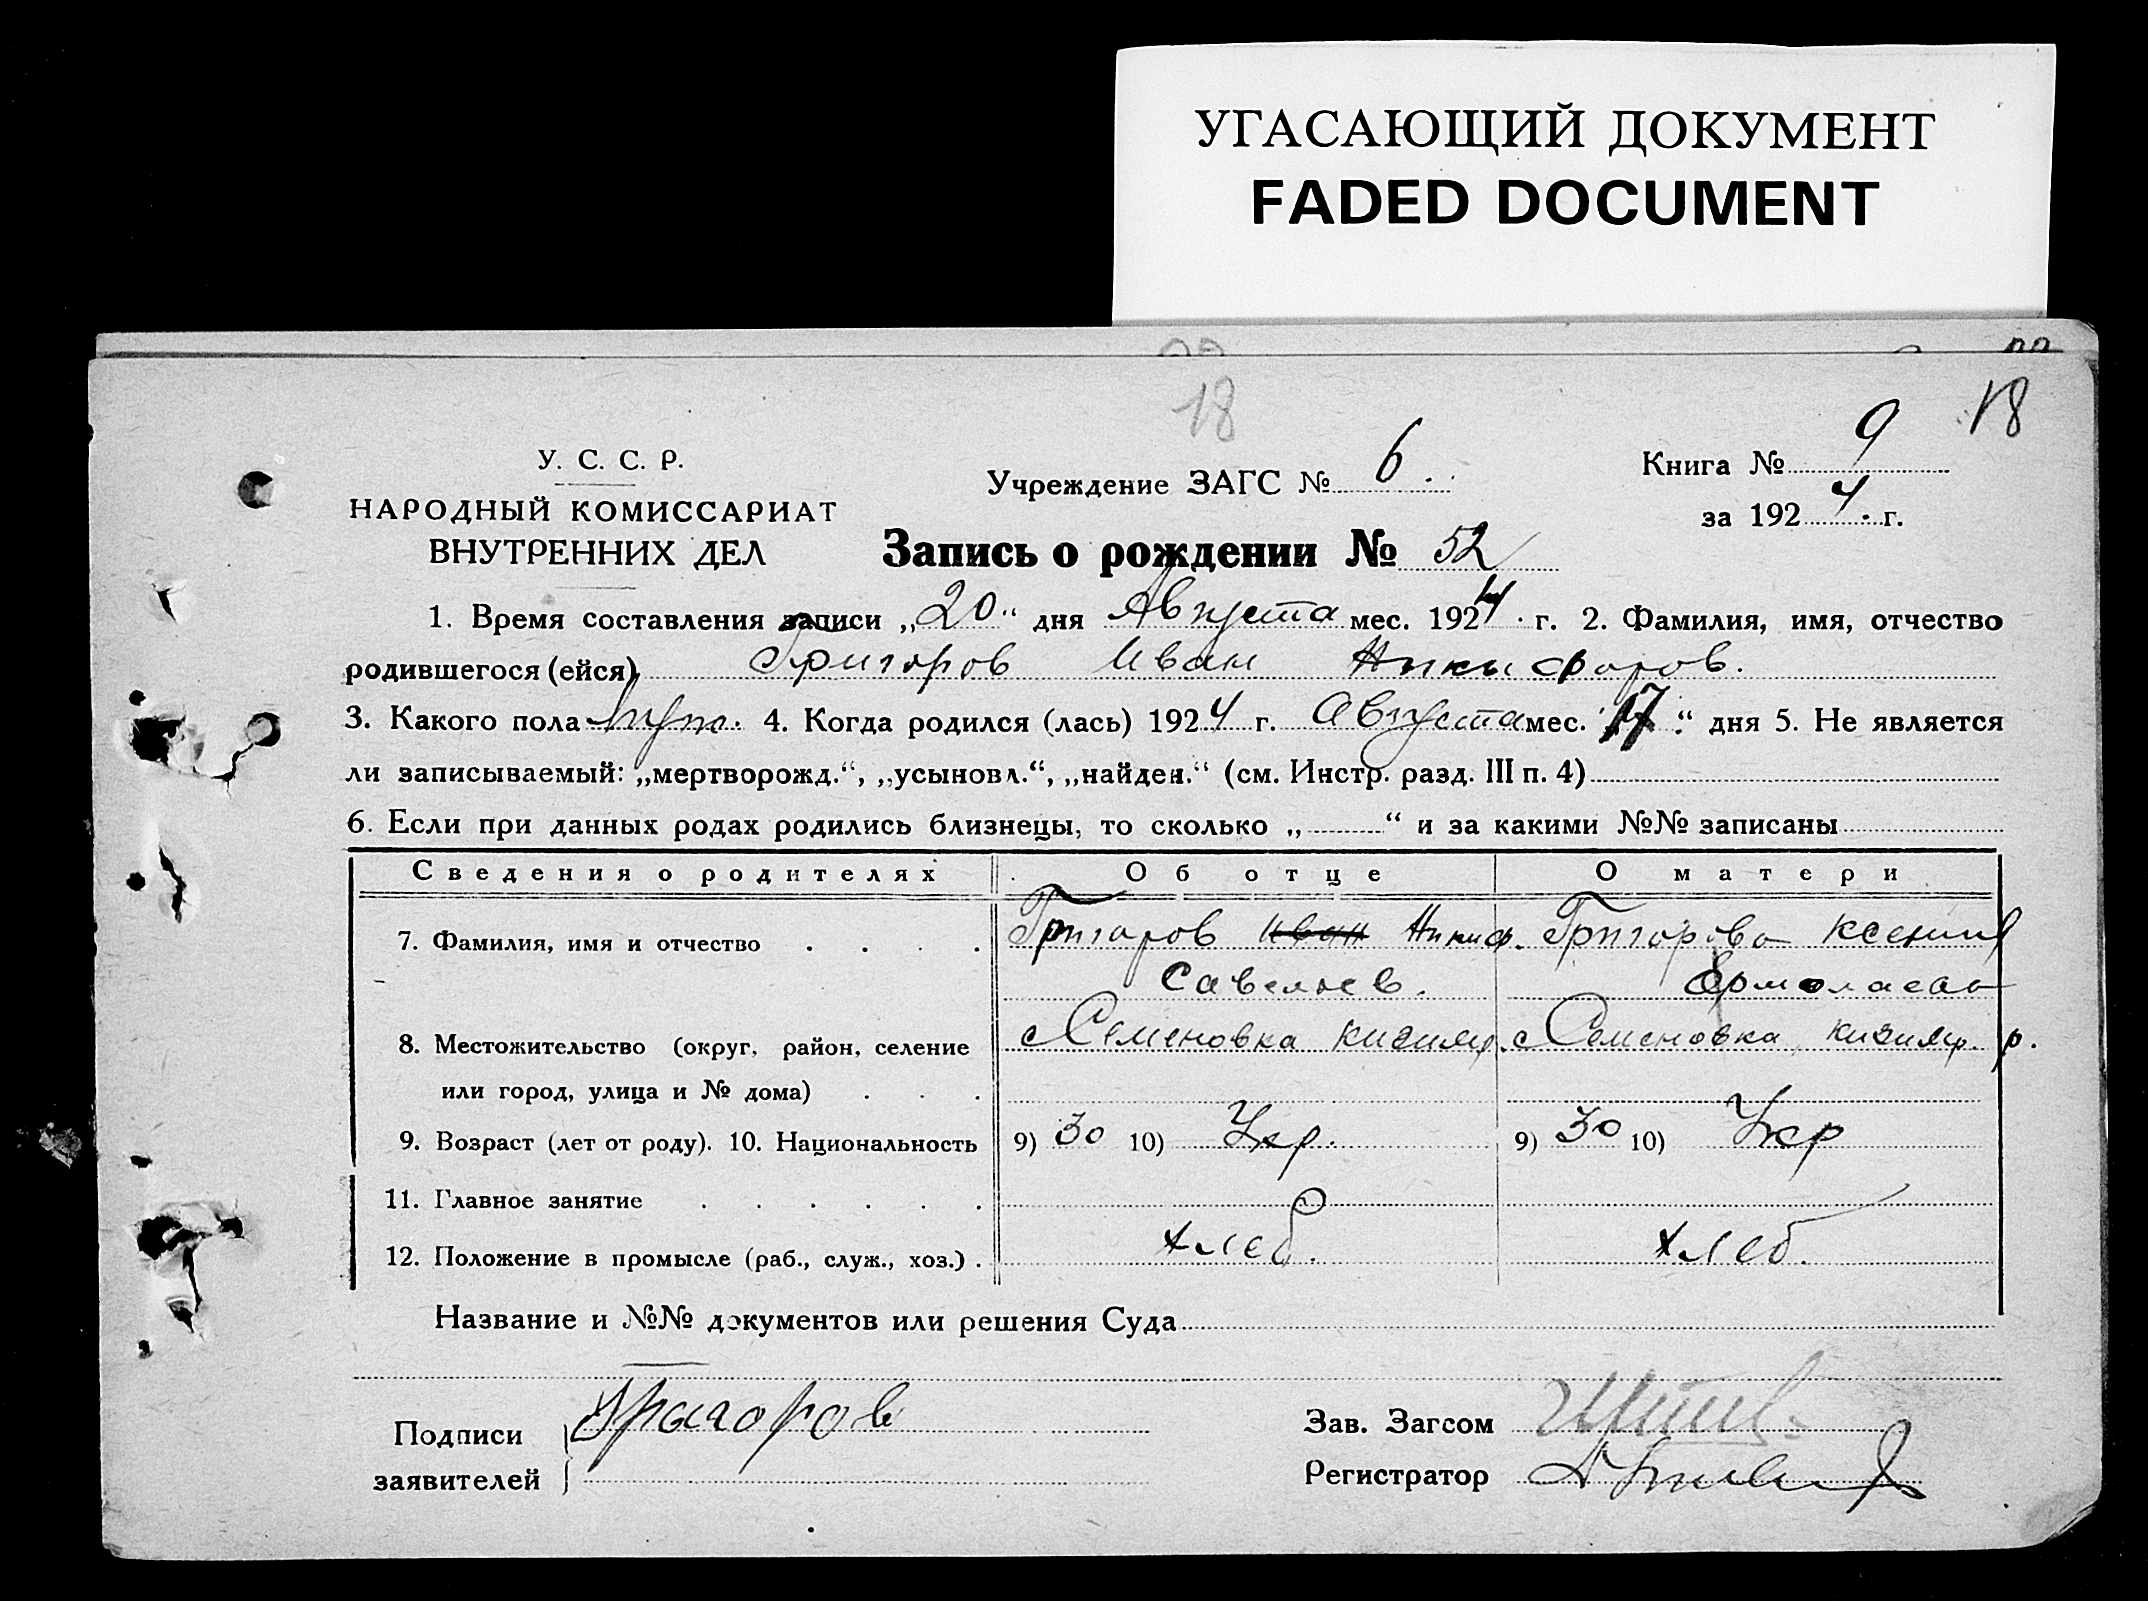 УГАСАЮЩИЙ ДОКУМЕНТ
FADED DOCUMENT
18
18
У. С. С. Р.
НАРОДНЫЙ КОМИССАРИАТ
ВНУТРЕННИХ ДЕЛ
Учреждение ЗАГС № 6.
Книга № 9
за 1924 г.
Запись о рождении № 52
1. Время составления записи „20“ дня Августа мес. 1924 г. 2. Фамилия, имя, отчество
родившегося (ейся) Григоров Иван Никифоров.
3. Какого пола муж. 4. Когда родился (лась) 1924 г. Августа мес. „17“ дня 5. Не является
ли записываемый: „мертворожд.“, „усыновл.“, „найден.“ (см. Инстр. разд. III п. 4)
6. Если при данных родах родились близнецы, то сколько „ “ и за какими №№ записаны
Сведения о родителях Об отце О матери
7. Фамилия, имя и отчество . . . . Григоров Иван Никиф. Григорова Ксения
Савельев. Ермолаева
8. Местожительство (округ, район, селение с Семеновка Кизияр. с Семеновка Кизияр. р.
или город, улица и № дома) . . .
9. Возраст (лет от роду). 10. Национальность 9) 30 10) Укр. 9) 30 10) Укр
11. Главное занятие . . . . . .
12. Положение в промысле (раб., служ., хоз.) . хлеб. хлеб.
Название и №№ документов или решения Суда
Подписи Григоров
заявителей
Зав. Загсом
Регистратор